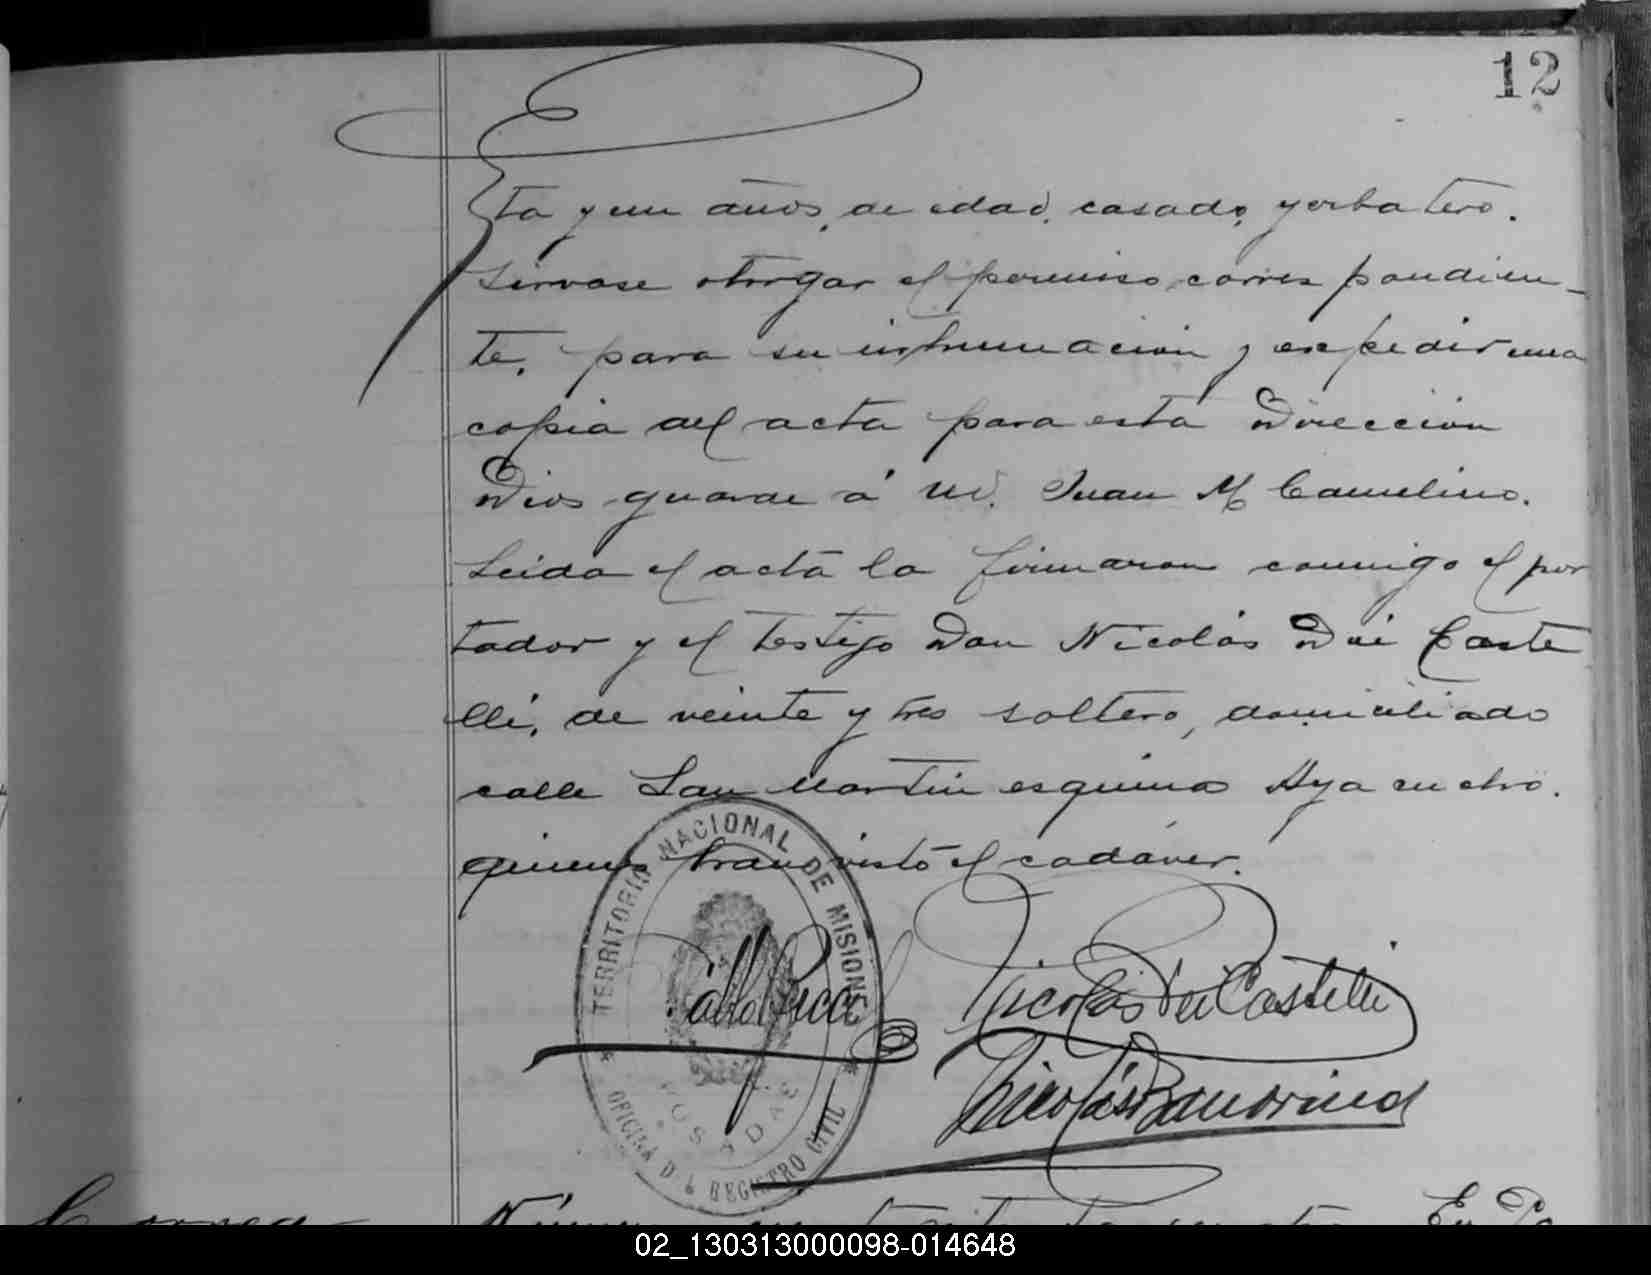 12
ta y un años, de edad, casado, yerbatero.
Sirvase otorgar el permiso correspondien-
te, para su inhumacion y expedir una
copia del acta para esta Direccion
Dios guarde á Ud. Juan M Camelino.
Leida el acta la firmaron conmigo el por
tador y el testigo Don Nicolás Dei Caste
lli, de veinte y tres soltero, domiciliado
calle San Martin esquina Ayacucho.
quienes han visto el cadáver.
TERRITORIO NACIONAL DE MISIONES
Nicolás Dei Castelli
POSADAS
OFICINA DEL REGISTRO CIVIL
En Po
02_130313000098-014648